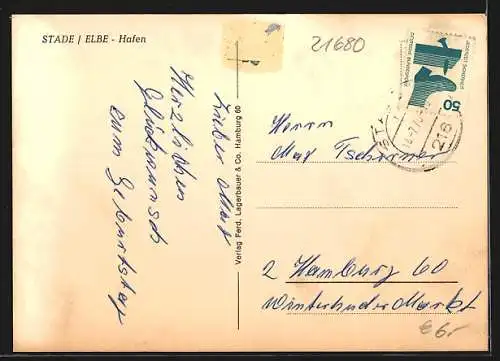 STADE / ELBE - Hafen
21680
Lieber Max
Herzlichen
Glückwunsch
zum Geburtstag
Verlag Ferd. Lagerbauer & Co. Hamburg 60
50
DEUTSCHE BUNDESPOST
jederzeit Sicherheit
216
Herrn
Max Tschirner
2 Hamburg 60
Winterhuder Markt